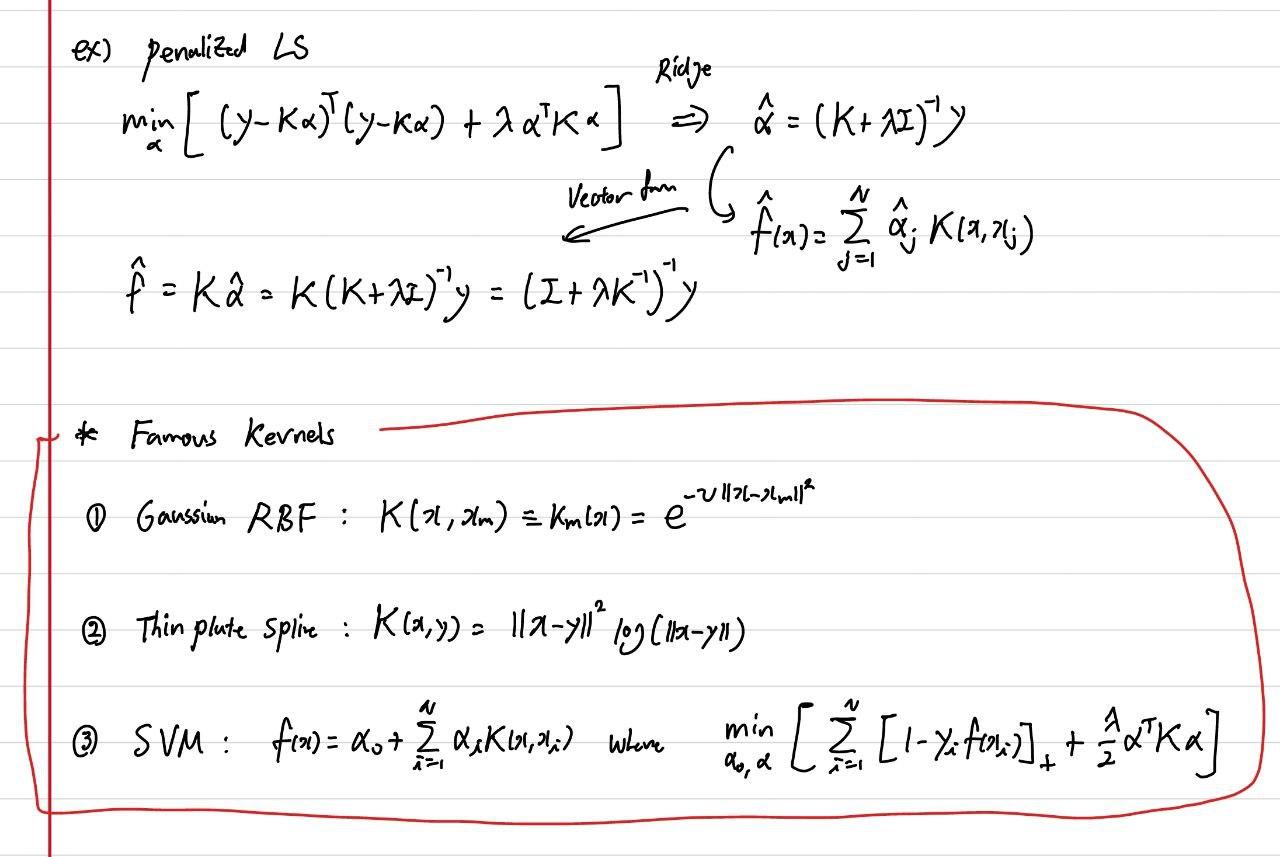 ex) penalized LS
min_α [ (y-Kα)ᵀ(y-Kα) + λαᵀKα ] Ridge ⇒ α̂ = (K+λI)⁻¹y
Vector form ← f̂(x) = Σ_{j=1}^{N} α̂_j K(x,x_j)
f̂ = Kα̂ = K(K+λI)⁻¹y = (I+λK⁻¹)⁻¹y
* Famous Kernels
① Gaussian RBF : K(x,x_m) = K_m(x) = e^{-ν||x-x_m||²}
② Thin plate Spline : K(x,y) = ||x-y||² log(||x-y||)
③ SVM : f(x) = α₀ + Σ_{i=1}^{N} α_i K(x,x_i) where min_{α₀,α} [ Σ_{i=1}^{N} [1-y_i f(x_i)]₊ + λ/2 αᵀKα ]